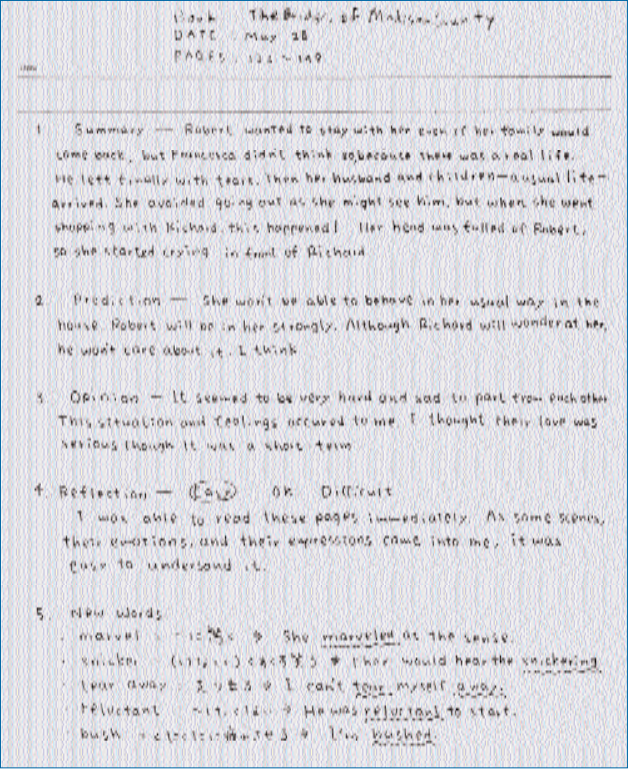 Book The Bridges of Madison County
DATE : May 28
PAGES :
1 Summary — Robert wanted to stay with her even if her family would
come back, but Francesca didn't think so, because there was a real life.
He left finally with tears. Then her husband and children — a usual life —
arrived. She avoided going out as she might see him, but when she went
shopping with Richard, this happened! Her head was fulled of Robert,
so she started crying in front of Richard
2 Prediction — She won't be able to behave in her usual way in the
house. Robert will be in her strongly. Although Richard will wonder at her,
he won't care about it. I think
3 Opinion — It seemed to be very hard and sad to part from each other
This situation and feelings occured to me. I thought their love was
serious though it was a short term
4. Reflection — Easy OR Difficult
I was able to read these pages immediately. As some scenes,
their emotions, and their expressions came into me, it was
easy to undersand it.
5. New Words
· marvel : ~に驚く → She marveled at the sense.
· snicker : くすくす笑う → I her would hear the snickering
· tear away : → I can't tear myself away.
· reluctant : → He was reluctant to start.
· bush : → I'm bushed.